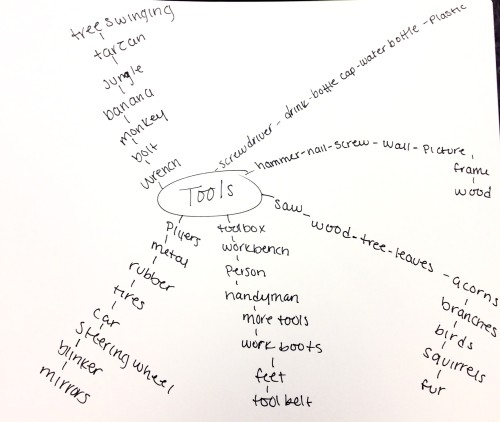 tree swinging
tarzan
jungle
banana
monkey
bolt
wrench
screwdriver - drink - bottle cap - water bottle - plastic
hammer - nail - screw - wall - picture
frame
wood
Tools
saw - wood - tree - leaves - acorns
branches
birds
squirrels
fur
toolbox
workbench
person
handyman
more tools
work boots
feet
tool belt
pliers
metal
rubber
tires
car
steering wheel
blinker
mirrors